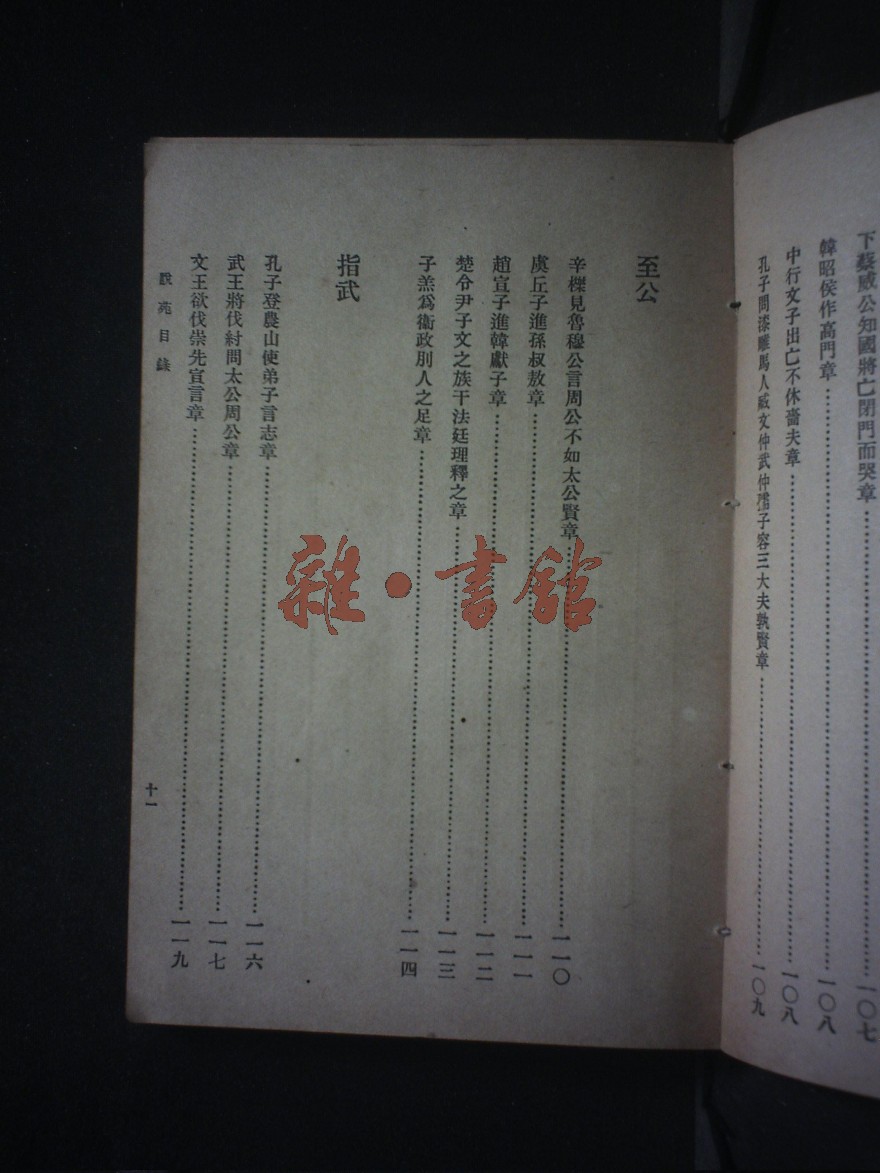 下蔡威公知國將亡閉門而哭章………一〇七
韓昭侯作高門章………一〇八
中行文子出亡不休嗇夫章………一〇八
孔子問漆雕馬人臧文仲武仲孺子容三大夫孰賢章………一〇九
至公
辛櫟見魯穆公言周公不如太公賢章………一一〇
虞丘子進孫叔敖章………一一一
趙宣子進韓獻子章………一一二
楚令尹子文之族干法廷理釋之章………一一三
子羔爲衞政刖人之足章………一一四
指武
孔子登農山使弟子言志章………一一六
武王將伐紂問太公周公章………一一七
文王欲伐崇先宣言章………一一九
說苑目錄
十一
雜·書館